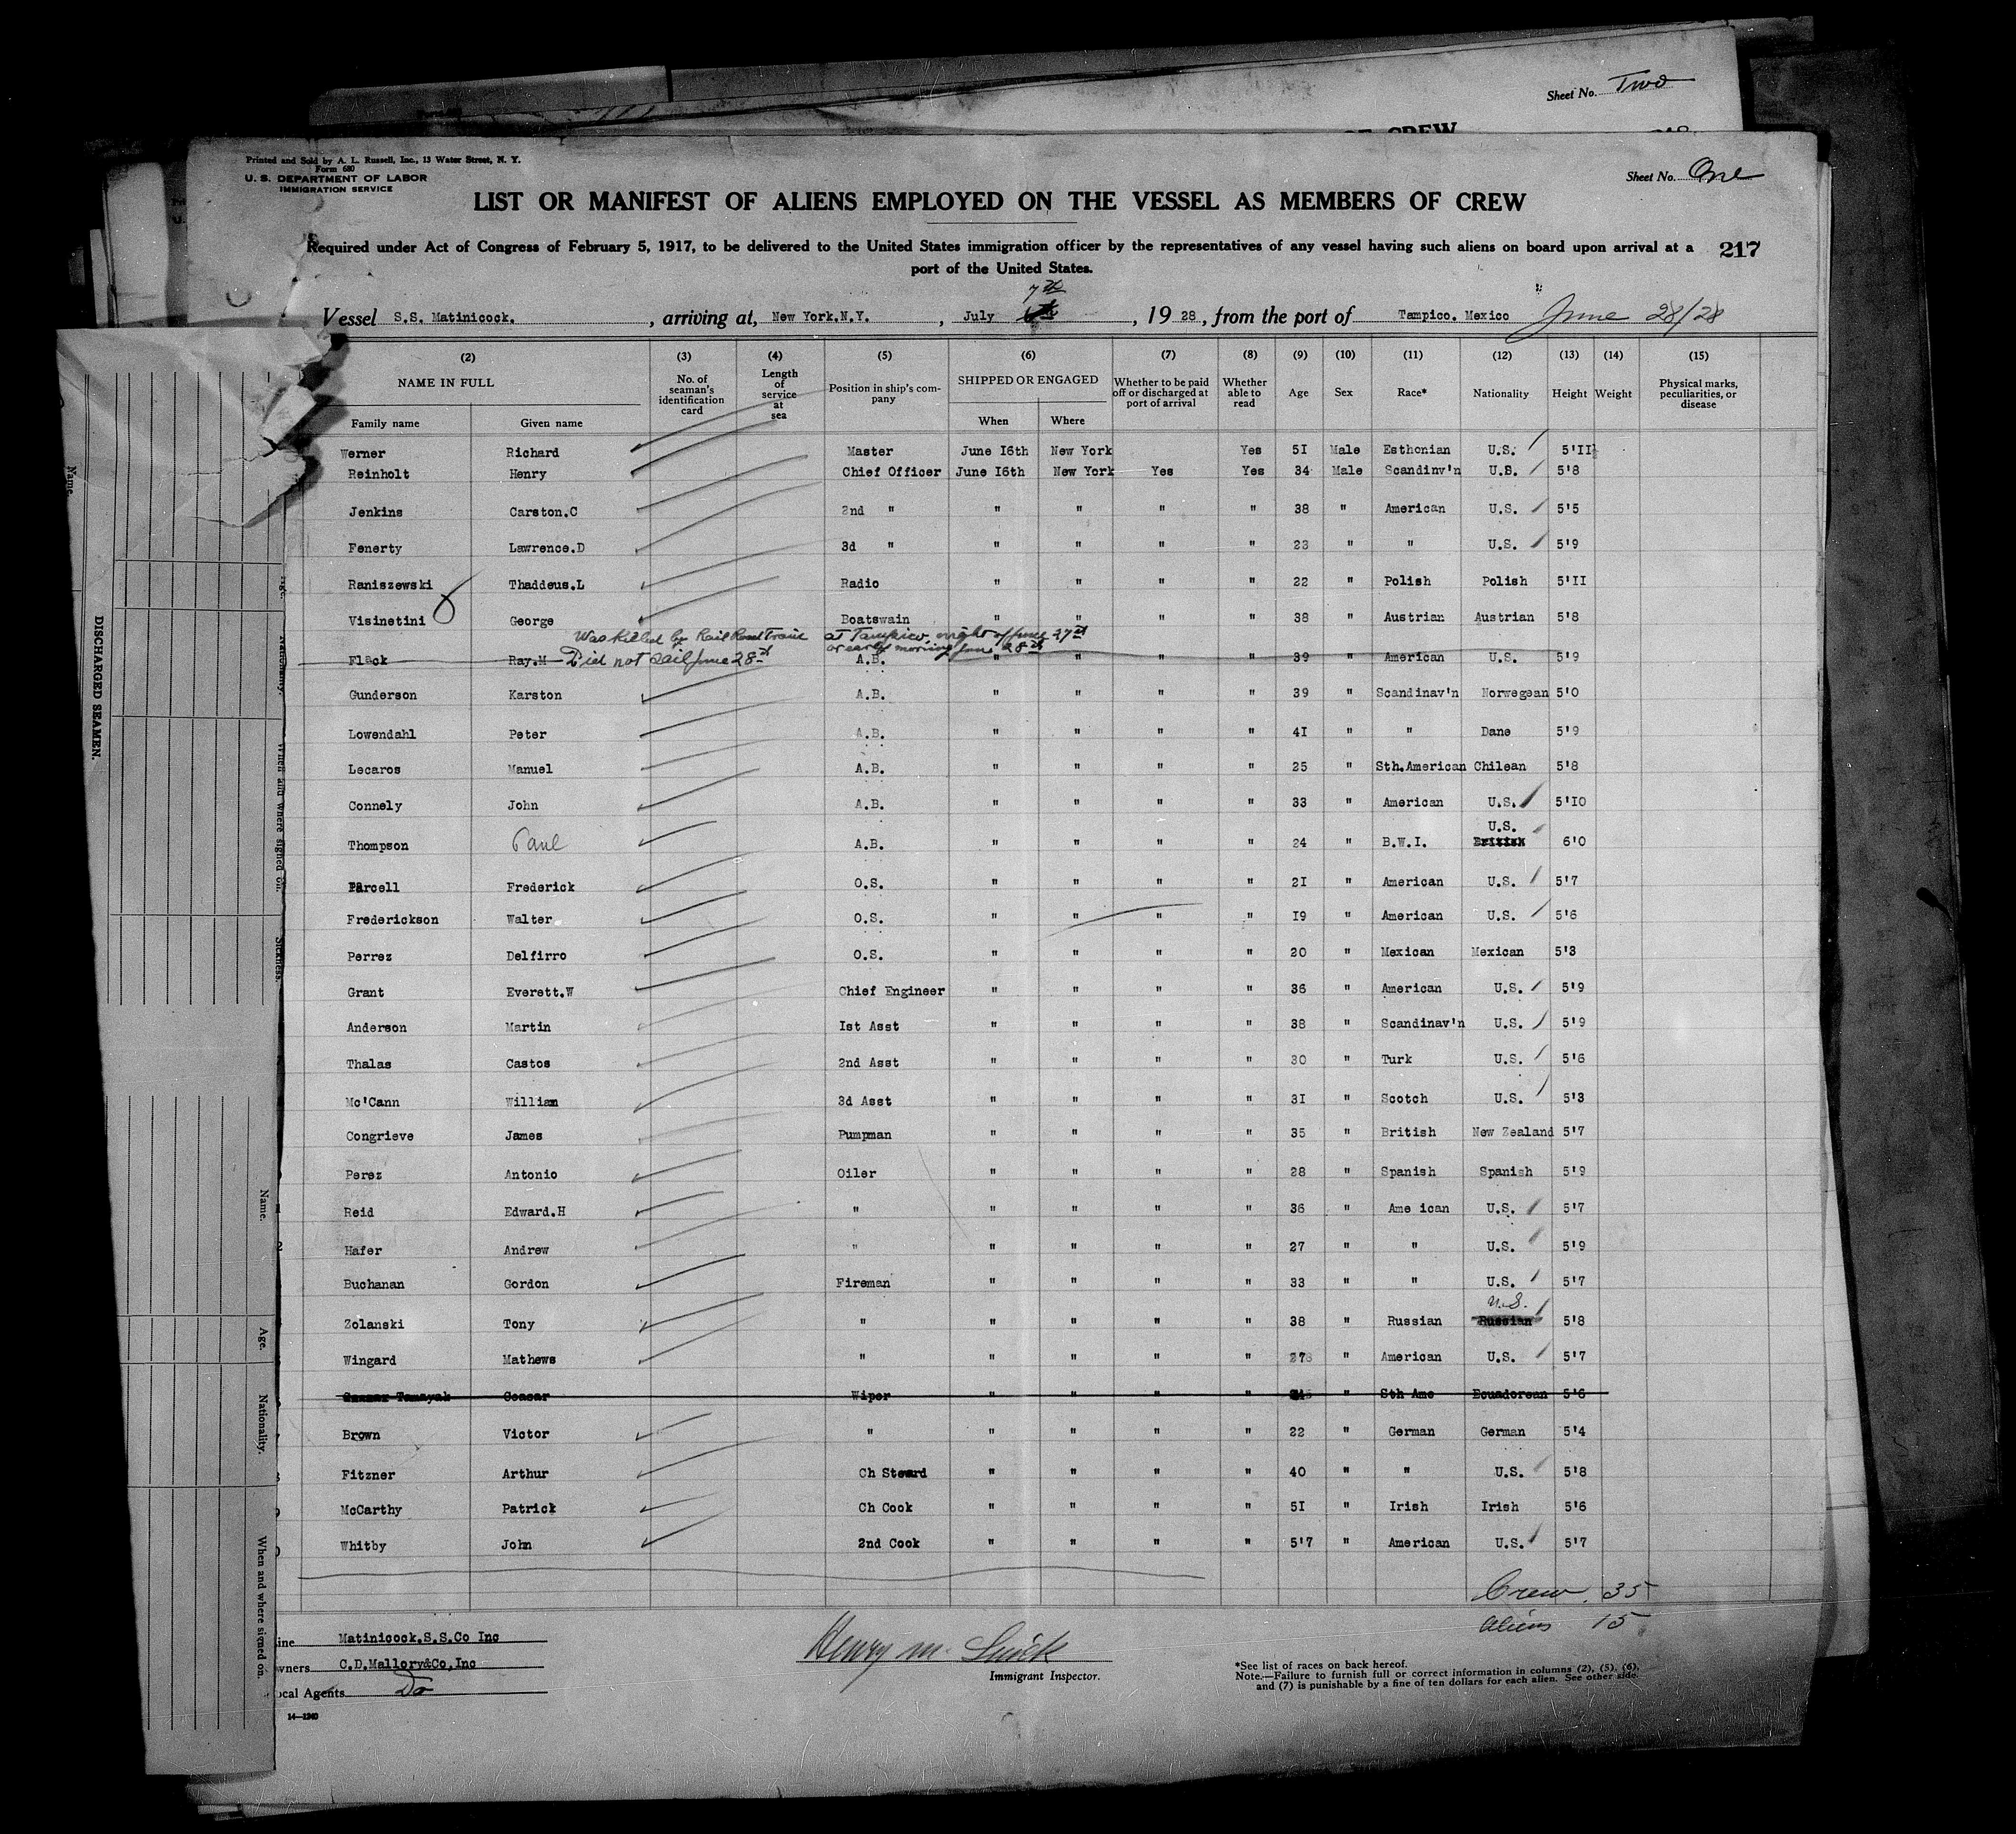 Sheet No. Two
OF CREW
Printed and Sold by A. L. Russell, Inc., 13 Water Street, N. Y.
Form 680
U. S. DEPARTMENT OF LABOR
IMMIGRATION SERVICE
Sheet No. One
LIST OR MANIFEST OF ALIENS EMPLOYED ON THE VESSEL AS MEMBERS OF CREW
Required under Act of Congress of February 5, 1917, to be delivered to the United States immigration officer by the representatives of any vessel having such aliens on board upon arrival at a 217
port of the United States.
7th
Vessel S.S. Matinicock. , arriving at, New York.N.Y. , July , 19 28 , from the port of Tampico. Mexico June 28/28
(2) (3) (4) (5) (6) (7) (8) (9) (10) (11) (12) (13) (14) (15)
NAME IN FULL No. of seaman's identification card Length of service at sea Position in ship's com-pany SHIPPED OR ENGAGED Whether to be paid off or discharged at port of arrival Whether able to read Age Sex Race* Nationality Height Weight Physical marks, peculiarities, or disease
Family name Given name When Where
Werner Richard Master June I6th New York Yes 5I Male Esthonian U.S. 5'II½
Reinholt Henry Chief Officer June I6th New York Yes Yes 34 Male Scandinv'n U.S. 5'8
Jenkins Carston.C 2nd " " " " " 38 " American U.S. 5'5
Fenerty Lawrence.D 3d " " " " " 23 " " U.S. 5'9
Raniszewski Thaddeus.L Radio " " " " 22 " Polish Polish 5'II
Visinetini George Boatswain " " " " 38 " Austrian Austrian 5'8
Was killed by Rail Road Train at Tampico, night of June 27th
or early morning June 28th
Flack Ray.M Did not sail June 28th A.B. " " " " 39 " American U.S. 5'9
Gunderson Karston A.B. " " " " 39 " Scandinav'n Norwegean 5'0
Lowendahl Peter A.B. " " " " 4I " " Dane 5'9
Lecaros Manuel A.B. " " " " 25 " Sth.American Chilean 5'8
Connely John A.B. " " " " 33 " American U.S. 5'IO
U.S.
Thompson Paul A.B. " " " " 24 " B.W.I. British 6'0
Parcell Frederick O.S. " " " " 2I " American U.S. 5'7
Frederickson Walter O.S. " " " " I9 " American U.S. 5'6
Perrez Delfirro O.S. " " " " 20 " Mexican Mexican 5'3
Grant Everett.W Chief Engineer " " " " 36 " American U.S. 5'9
Anderson Martin Ist Asst " " " " 38 " Scandinav'n U.S. 5'9
Thalas Castos 2nd Asst " " " " 30 " Turk U.S. 5'6
Mc'Cann William 3d Asst " " " " 3I " Scotch U.S. 5'3
Congrieve James Pumpman " " " " 35 " British New Zealand 5'7
Perez Antonio Oiler " " " " 28 " Spanish Spanish 5'9
Reid Edward.H " " " " " 36 " Ame ican U.S. 5'7
Hafer Andrew " " " " " 27 " " U.S. 5'9
Buchanan Gordon Fireman " " " " 33 " " U.S. 5'7
U.S.
Zolanski Tony " " " " " 38 " Russian Russian 5'8
Wingard Mathews " " " " " 27 " American U.S. 5'7
Tamayah Ceasar Wiper " " " " " Sth Ame Ecuadorean 5'6
Brown Victor " " " " " 22 " German German 5'4
Fitzner Arthur Ch Steward " " " " 40 " " U.S. 5'8
McCarthy Patrick Ch Cook " " " " 5I " Irish Irish 5'6
Whitby John 2nd Cook " " " " 5'7 " American U.S. 5'7
Crew 35
Aliens 15
ine Matinicock.S.S.Co Inc
wners C.D.Mallory&Co,Inc
ocal Agents Do
14—1240
Henry M.
Immigrant Inspector.
*See list of races on back hereof.
Note.—Failure to furnish full or correct information in columns (2), (5), (6),
and (7) is punishable by a fine of ten dollars for each alien. See other side.
DISCHARGED SEAMEN.
Name.
When and where signed on.
Sickness.
Name.
Age.
Nationality.
When and where signed on.